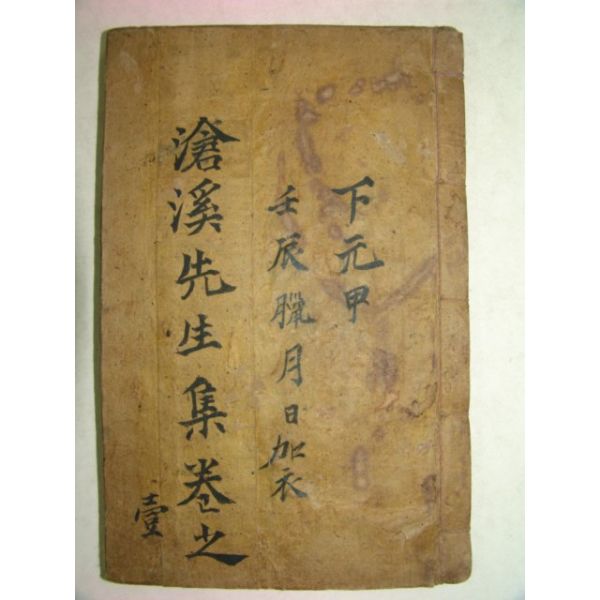 下元甲
壬辰臘月日加衣
滄溪先生集卷之
壹